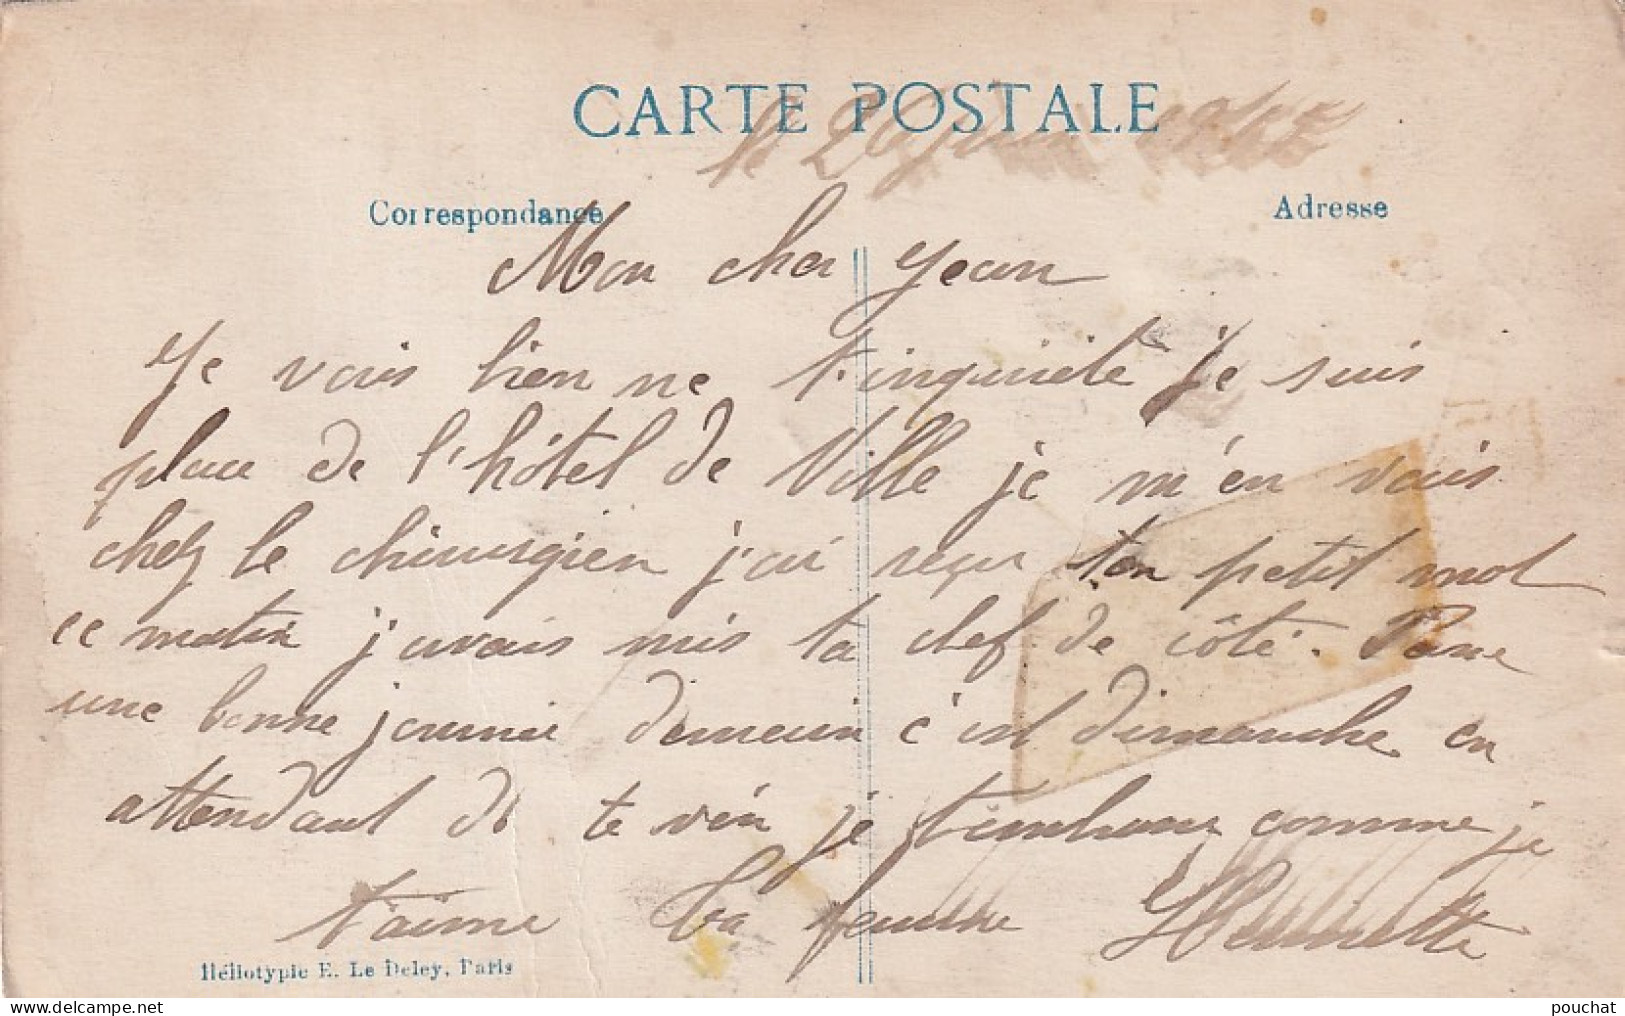 CARTE POSTALE
le 26 juin
Correspondance
Adresse
Mon cher Jean
Je vais bien ne t'inquiète je suis
place de l'hôtel de Ville je m'en vais
chez le chirurgien j'ai reçu ton petit mot
ce matin j'avais mis ta clef de côté. Passe
une bonne journée demain c'est dimanche en
attendant de te voir je t'embrasse comme je
t'aime ta femme Henriette
Héliotypie E. Le Deley, Paris
pouchat